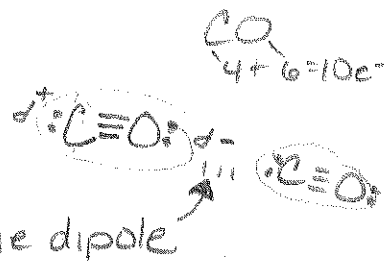 CO
4+ 6=10e⁻
δ+ :C≡O: δ- :C≡O:
dipole